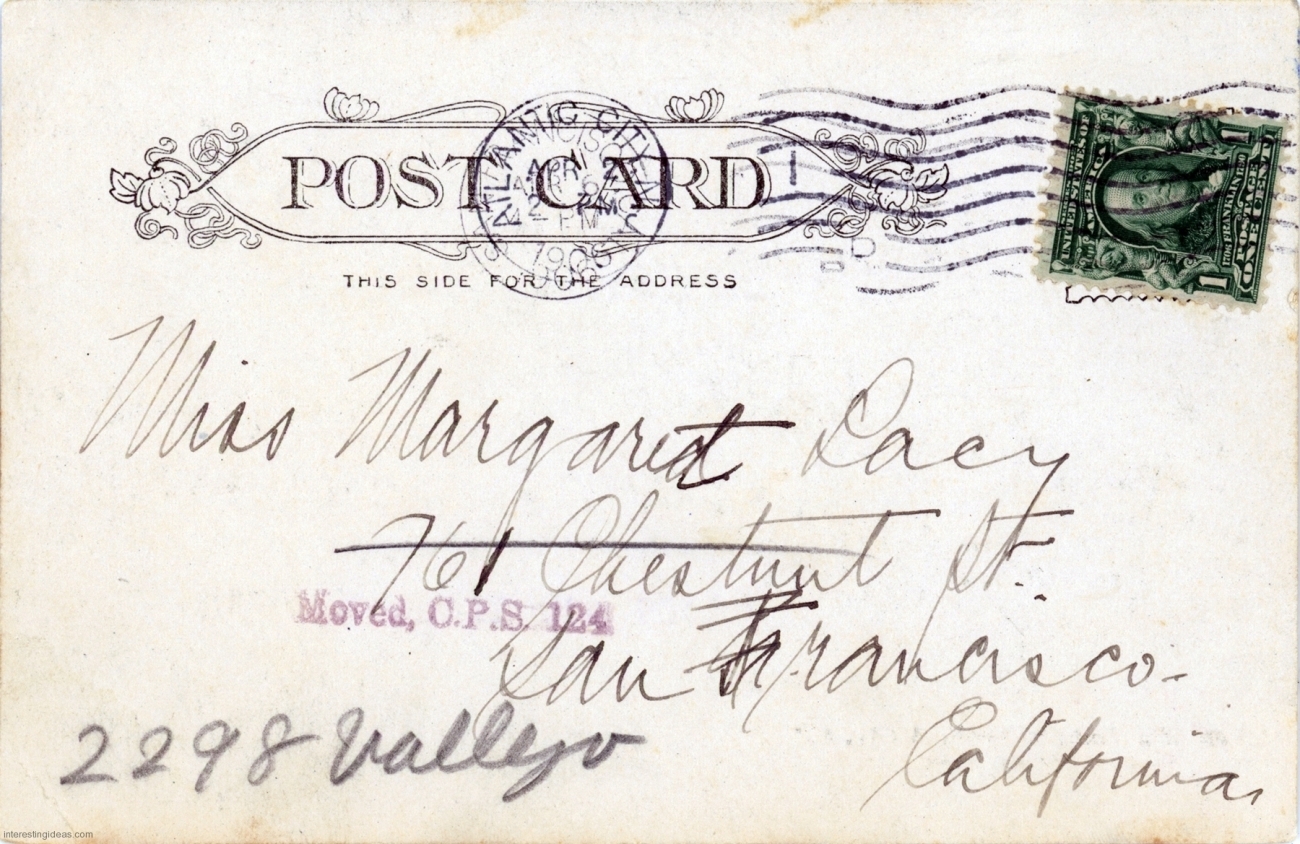 POST CARD
ATLANTIC CITY
APR
PM
THIS SIDE FOR THE ADDRESS
UNITED STATES OF AMERICA
1706 FRANKLIN 1790
POSTAGE
ONE CENT
1 1
Miss Margaret Lacy
761 Chestnut St.
Moved, C.P.S. 124
San Francisco-
California
2298 Vallejo
interestingideas.com